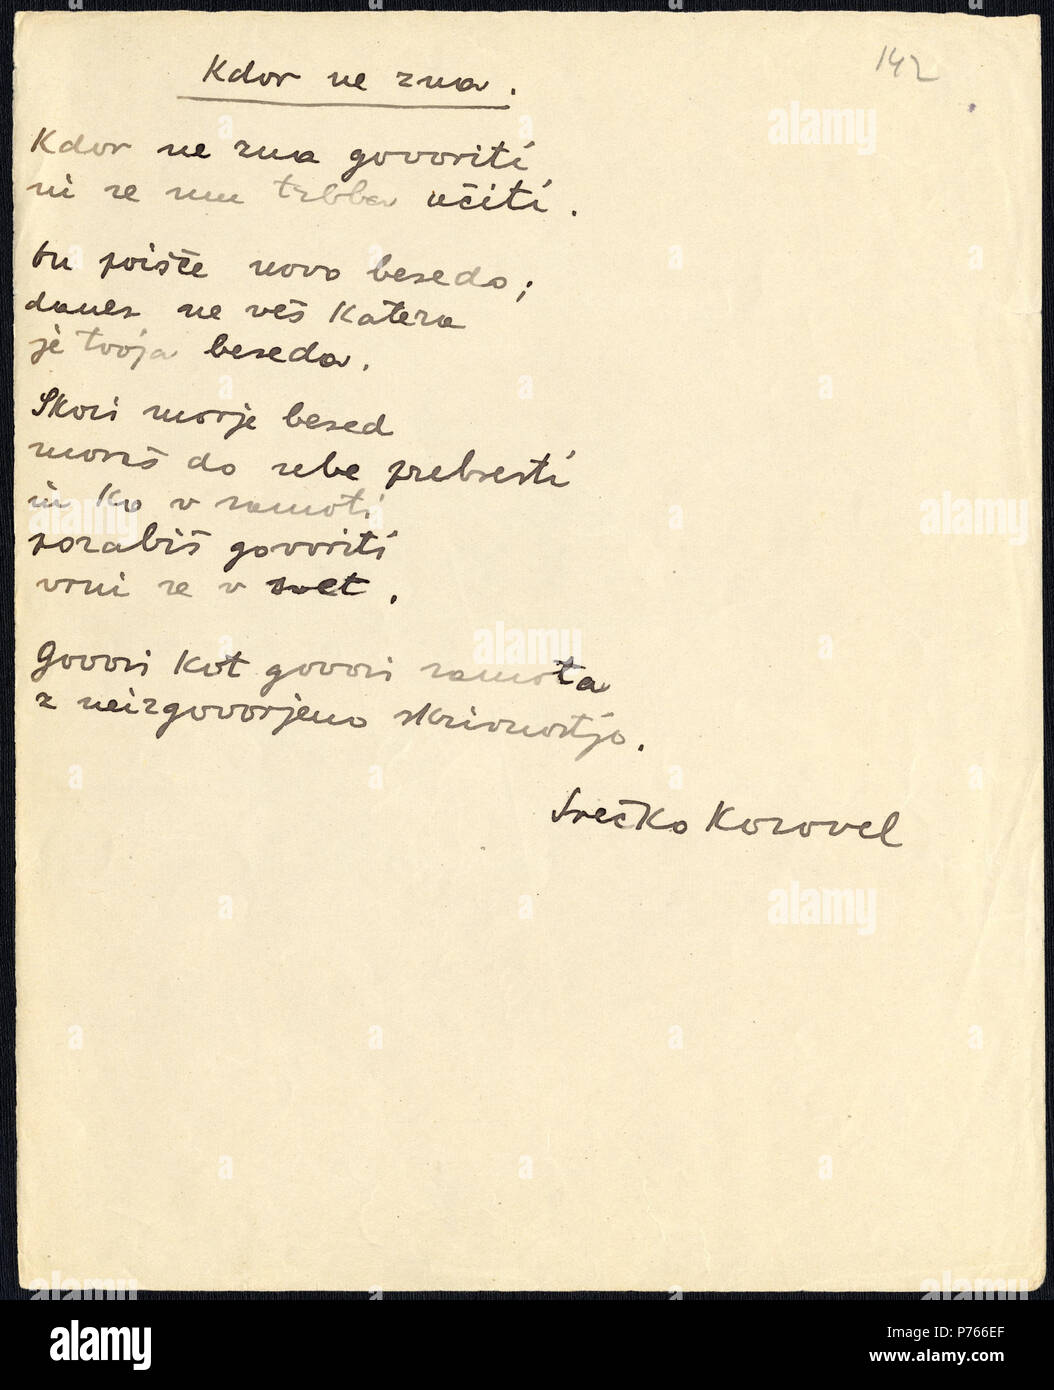 142
Kdor ne zna.
Kdor ne zna govoriti
ni se mu treba učiti.
tu poišče novo besedo;
danes ne veš katera
je tvoja beseda.
Skozi morje besed
moraš do sebe prebresti
in ko v samoti
pozabiš govoriti
vrni se v svet.
Govori kot govori samota
z neizgovorjeno skrivnostjo.
Srečko Kosovel
alamy
Image ID: P766EF
www.alamy.com